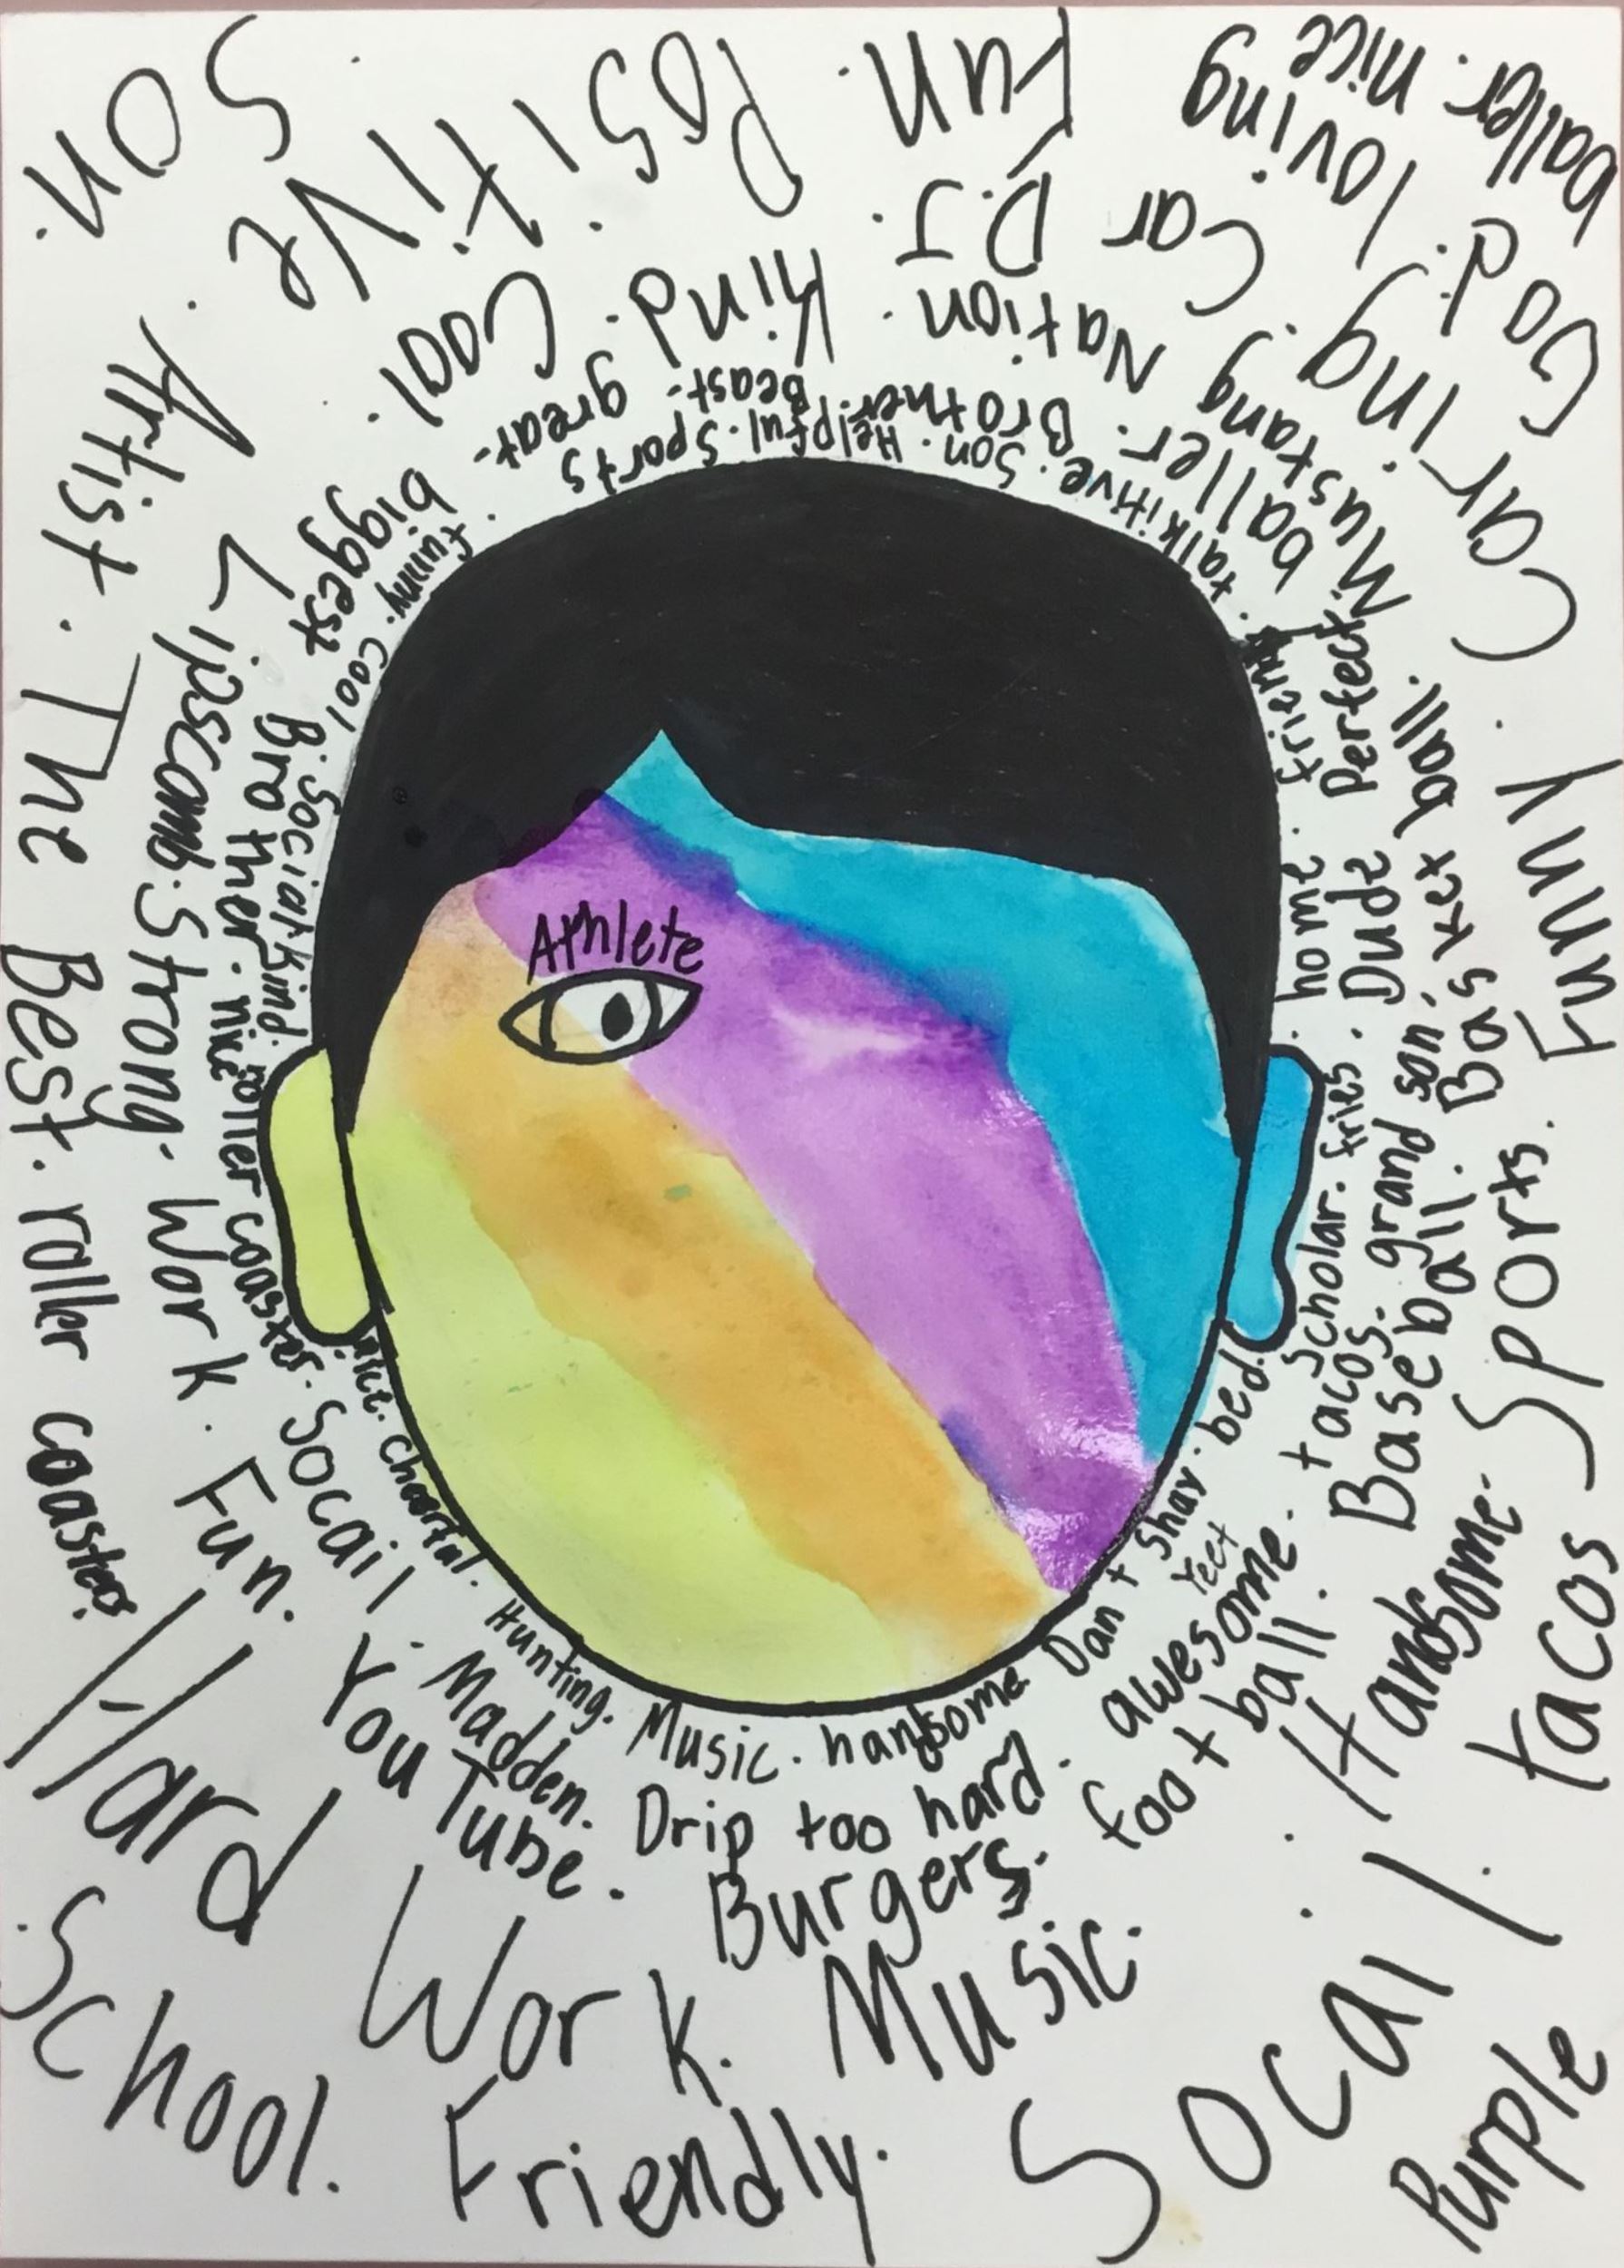 Athlete
funny. cool. Social. kind. roller coaster.
nice. cheerful. Hunting. Music. hansome. Dan + Shay. bed.
Scholar. fries. home. friend. talkitive. Son. Helpful. Sports
biggest Brother. nice
Socail. Madden. Drip too hard. awesome. tacos. grand son. Dude. Perfect
Yeet
baller. Brother. Beast. great.
Lipscomb. Strong. Work. Fun. You Tube. Burgers. foot ball. Base ball. Bas ket ball.
Mustang Nation. Kind. Cool.
Artist. The Best. roller coasters.
Hard Work. Music.
Handsome. Sports. Funny. Caring. Car D.J. Positive Son.
School. Friendly. Socail. tacos
Purple
God. loving Fun.
baller. nice